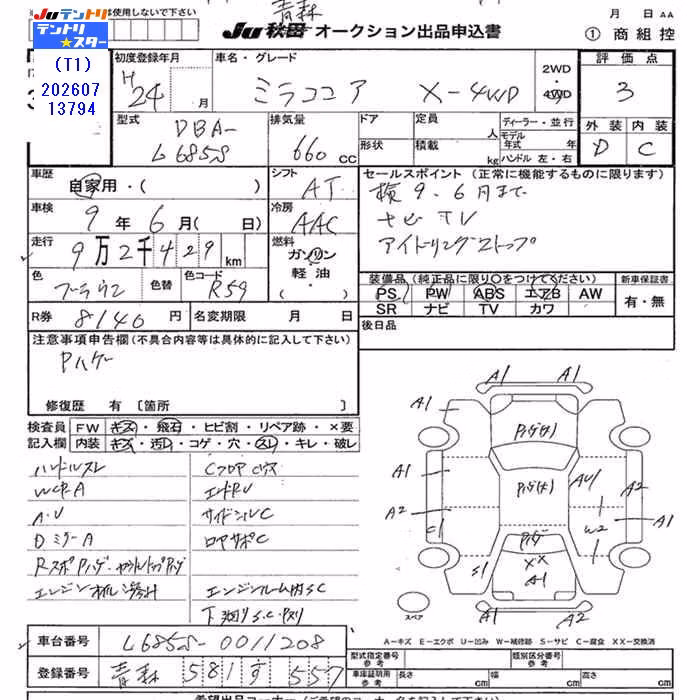 は使用しないで下さい
青森
Ju テントリ
テントリ★スター
(T1)
202607
13794
Ju 秋田 オークション出品申込書
月 日 AA
① 商 組 控
初度登録年月
H24 月
車名・グレード
ミラココア X-4WD
2WD
・
4WD
評価点
3
外装 内装
D C
型式
DBA-
L685S
排気量
660 cc
ドア
定員 人
ディーラー・並行
モデル
年式 年
形状
積載 kg
ハンドル 左・右
車歴
自家用・( )
シフト
AT
セールスポイント (正常に機能するものに限ります)
検9.6月まで
ナビ TV
アイドリングストップ
車検
9 年 6 月( 日)
冷房
AAC
走行
9万2千429 km
燃料
ガソリン
軽油
・( )
色
ブラウン
色替
色コード
R59
装備品 (純正品に限り○をつけてください)
PS PW ABS エアB AW
SR ナビ TV カワ
新車保証書
有・無
R券 8140 円
名変期限 月 日
後日品
注意事項申告欄(不具合内容等は具体的に記入して下さい)
Pハゲ
修復歴 有 [箇所 ]
検査員
記入欄
FW キズ・飛石・ヒビ割・リペア跡・×要
内装 キズ・汚レ・コゲ・穴・スレ・キレ・破レ
ハンドルスレ
WCP.A
A・U
DミラーA
エンジンオイル
エンドRU
サイドシルC
ロアサポC
エンジンルーム内S.C
下廻りS.C
A1 A1
A1
Pハゲ(大)
A1
Pハゲ(大)
AU
A2
A2
A1
C1
W2
Pハゲ
XX
A1
S1
A1
A2
スペア
A-キズ E-エクボ U-凹み W-補修跡 S-サビ C-腐食 XX-交換済
車台番号 L685S-0011208
登録番号 青森 581 す 557
型式指定番号
参考
類別区分番号
参考
車庫証明用
参考
長さ cm
幅 cm
高さ cm
希望出品コーナー (ご希望のコーナー